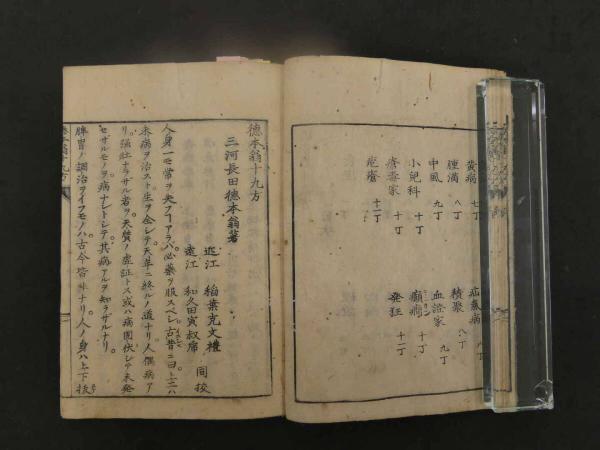 黄病 七丁
腫満 八丁
中風 九丁
小児科 十丁
瘡毒家 十丁
疱瘡 十二丁
積聚 八丁
血證家 九丁
癲癇 十丁
発狂 十一丁
徳本翁十九方
三河長田徳本翁著
近江 稲葉克文禮
遠江 和久田寅叔虎 同校
人身一モ常ヲ失フアラハ必薬ヲ服スベシ古昔ニ曰上工ハ
未病ヲ治スト生ヲ全シテ天年ニ終ルノ道ナリ人僅病ア
リ強壮ナラザル者ヲ天質ノ虚証トス或ハ病因伏シテ未発
セザルモノヲ病ナシトシテ其病アルヲ知ラザルナリ
脾胃ノ調治ヲイフモノハ古今皆非ナリ人ノ身ハ上下抜